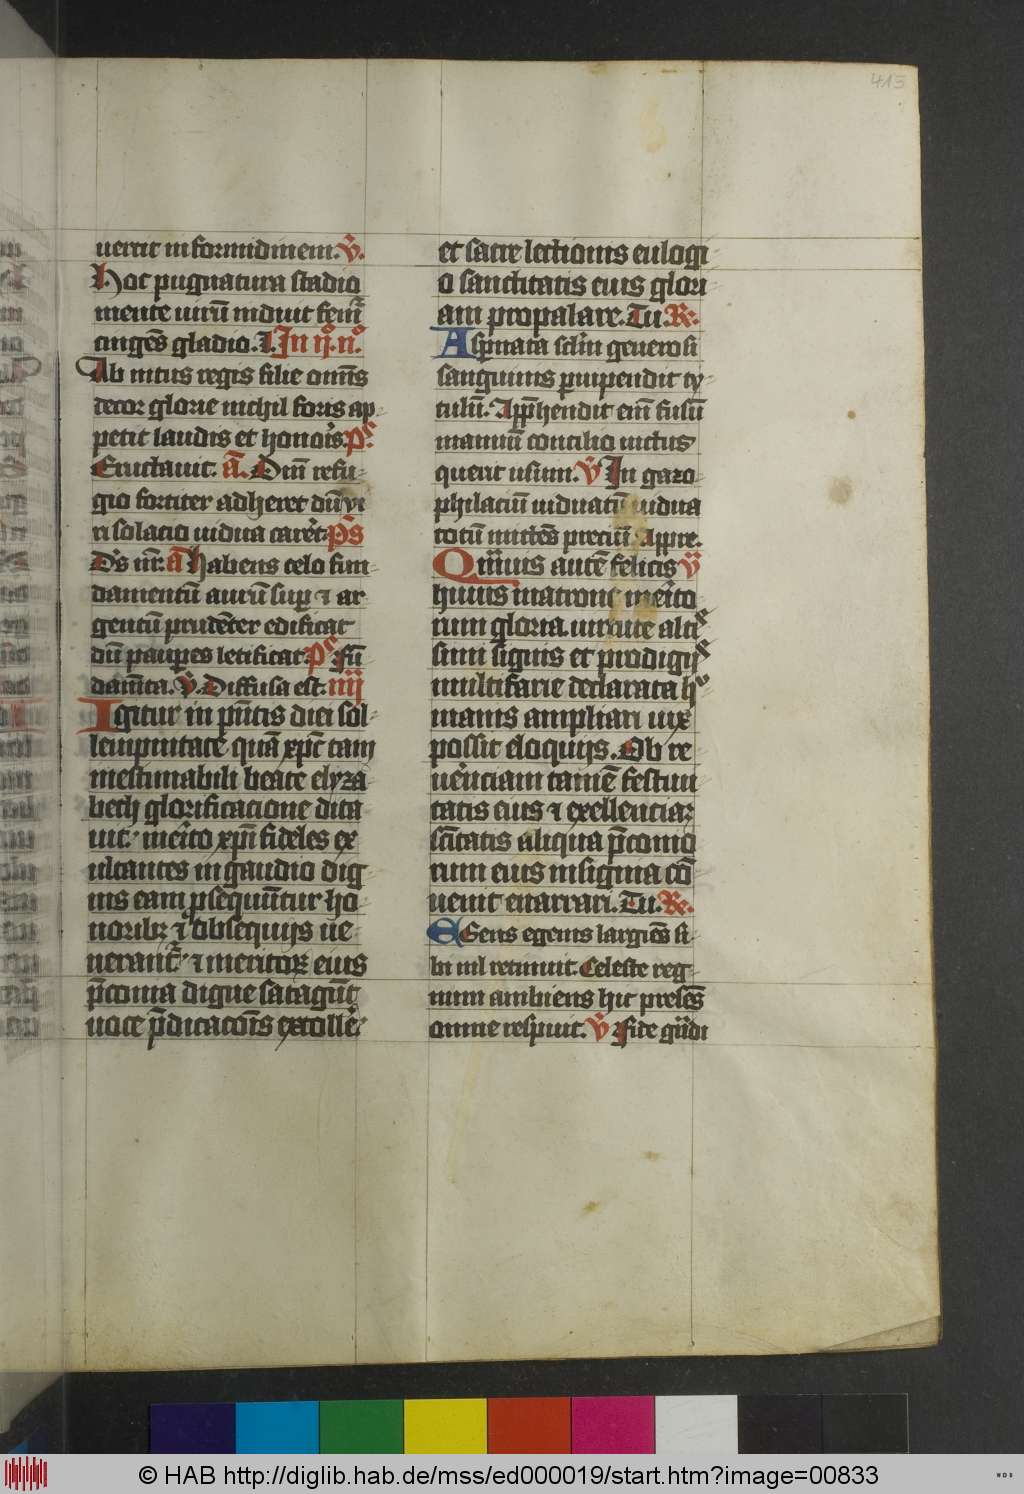 413
uertit in formidinem. v̄.
Hoc pugnatura stadio
mente uirū induit femī
cingēs gladio. I. In ij. n°.
Ab intus regis filie omīs
decor glorie nichil foris ap-
petit laudis et honoris. ps
Eructauit. ā. Diuī refu-
gio fortiter adheret dū vi
ri solacio uidua caret. ps
Ds nr̄. ā Habens celo fun-
damentū aurū sup ⁊ ar
gentū prudēter edificat
dū paupes letificat. ps Fū
damēta. v̄. Diffusa est. iiij
Igitur in pn̄tis diei sol-
lempnitate quā xpc̄ tam
inestimabili beate elyza
beth glorificacione dita
uit. merito xpī fideles ex
ultantes in gaudio dig-
nis eam psequūtur ho-
noribꝫ ⁊ obsequijs ue-
nerant᷑. ⁊ meritoꝝ eius
p̄conia digne satagūt
uoce p̄dicacōis extollē.
et sacre lectionis eulogi-
o sanctitatis eius glori
am propalare. Tu. R.
Aspnata sclīn generosi
sanguinis pcuipendit ty-
tulū. Apphendit eī fusū
manuū concilio uictus
querit usum. v̄ In gazo
philaciū uiduatū uidua
totū mittēs preciū. Appre.
Qm̄uis autē felicis v̄
huius matrone merito
rum gloria. uirtute altis
simi signis et prodigijs
multifarie declarata hu
manis ampliari uix
possit eloquijs. Ob re
uerenciam tamē festiui
tatis eius ⁊ exellenciaꝝ
sc̄itatis aliqua p̄conio
rum eius insignia cō
uenit enarrari. Tu. R.
EGens egenis largiēs si-
bi nil retinuit. Celeste reg-
num ambiens hic presēs
omne respuit. v̄ Fide gn̄di
© HAB http://diglib.hab.de/mss/ed000019/start.htm?image=00833